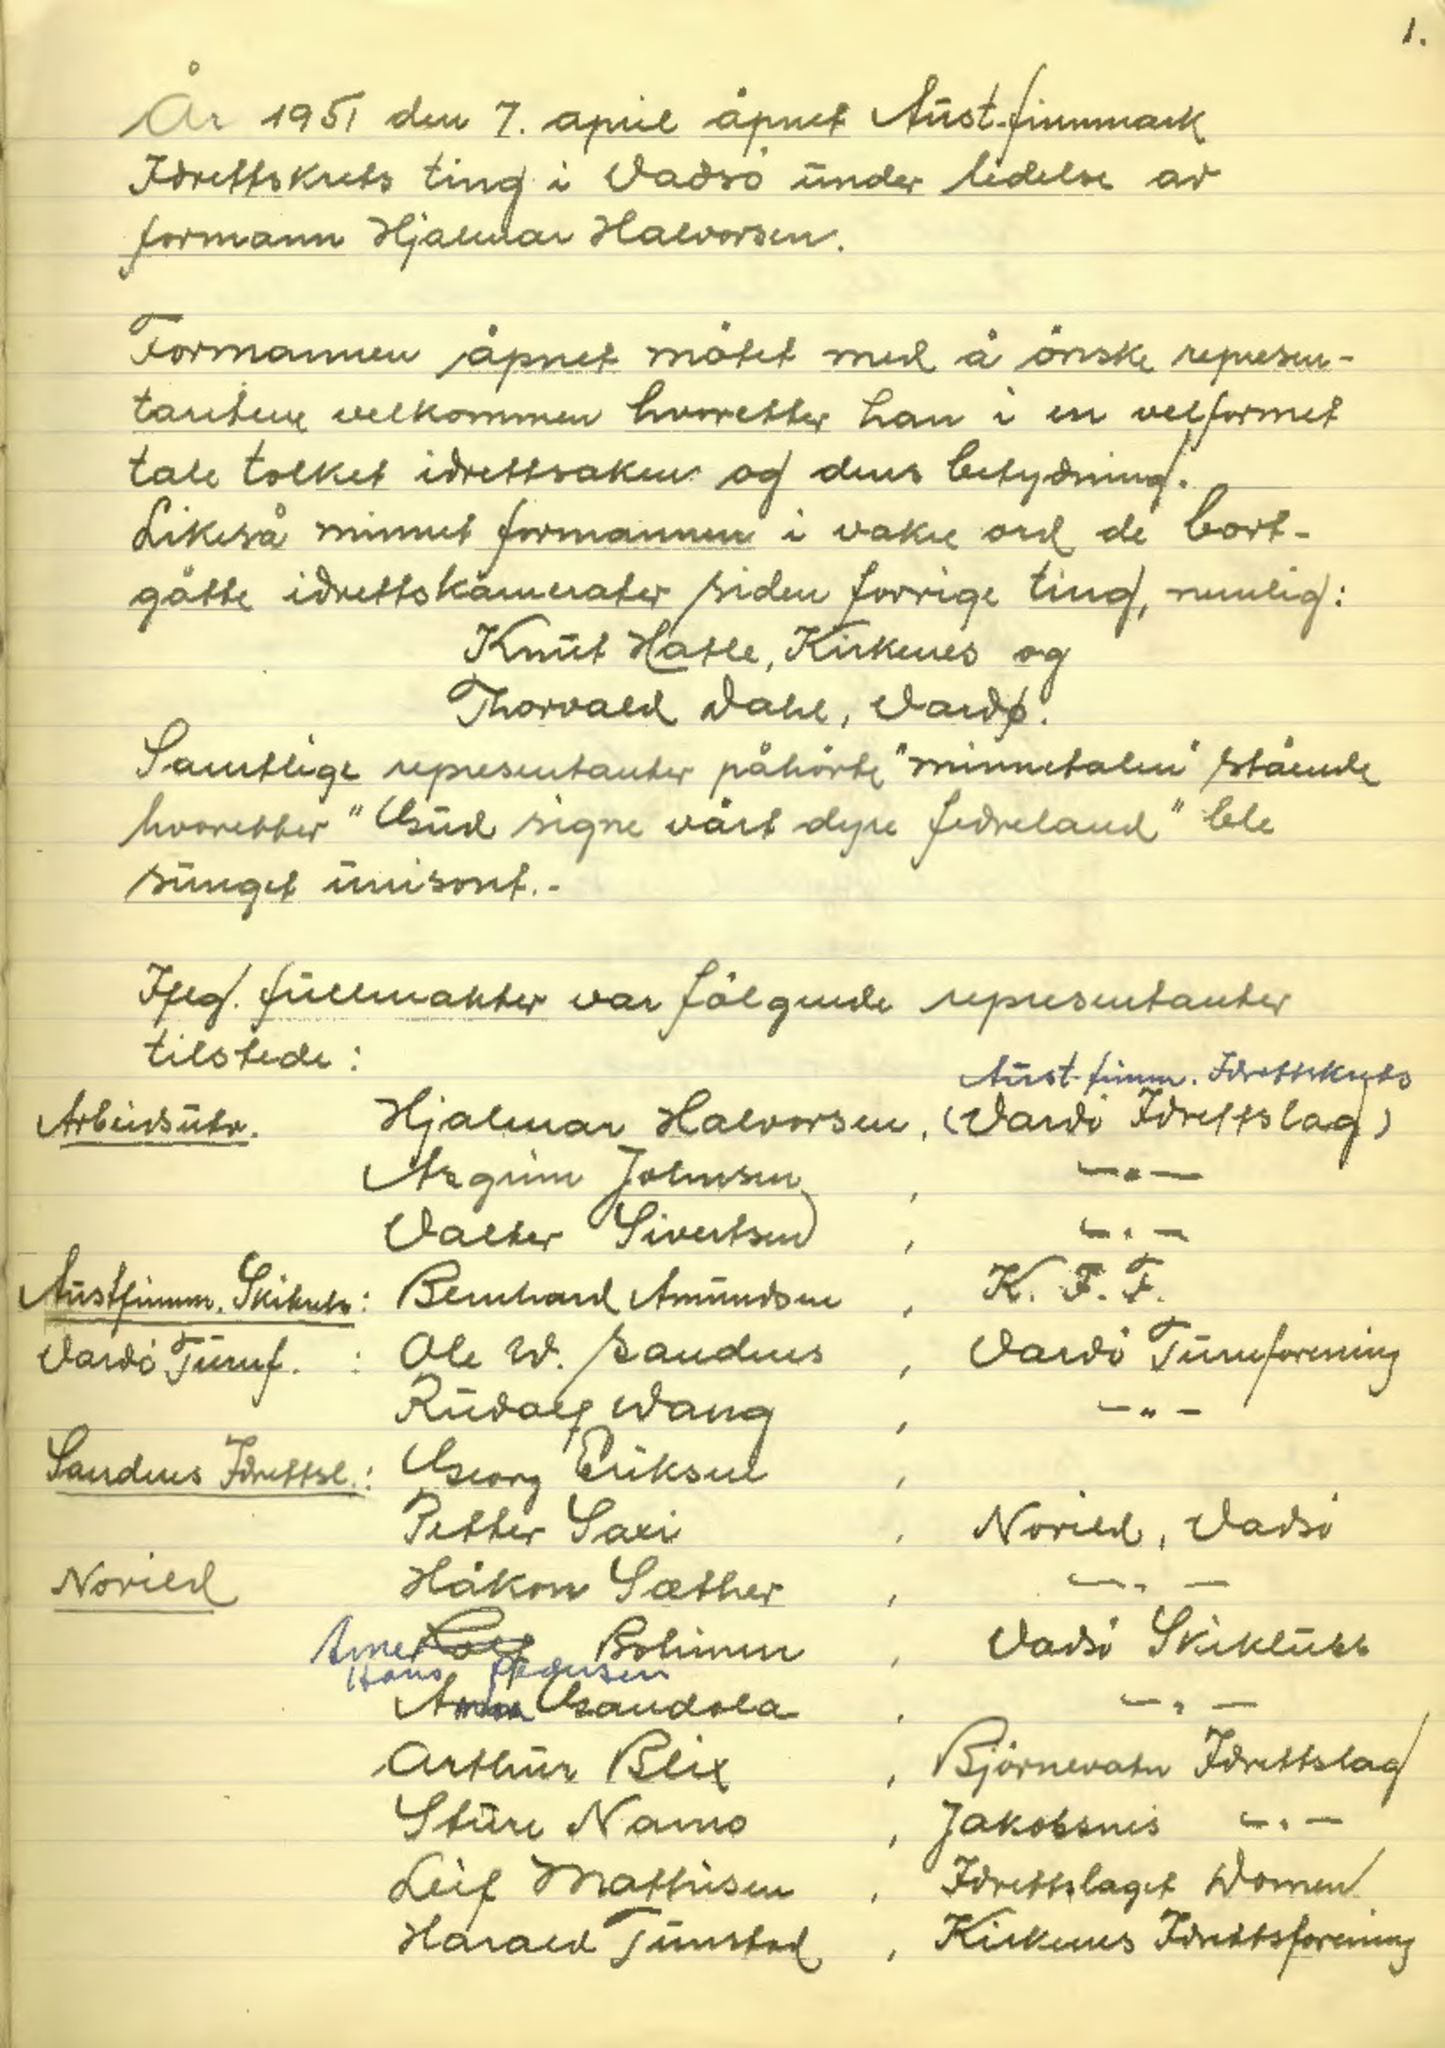 1.
År 1951 den 7. april åpnet Aust-finnmark
Idrettskrets ting i Vadsö under ledelse av
formann Hjalmar Halvorsen.
Formannen åpnet mötet med å önske represen-
tantene velkommen hvoretter han i en velformet
tale tolket idrettsaken og dens betydning.
Likeså minnet formannen i vakre ord de bort-
gåtte idrettskamerater siden forrige ting, nemlig:
Knut Hatle, Kirkenes og
Thorvald Dahl, Vardø.
Samtlige representanter påhörte "minnetalen" stående
hvoretter "Gud signe vårt dyre fedreland" ble
sunget unisont.-
Ifeg. fullmakter var fölgende representanter
tilstede:
Aust-finnm. Idrettskrets
Arbeidsutv. Hjalmar Halvorsen, (Vardö Idrettslag)
Asgrim Johnsen, -"-
Valter Sivertsen, -"-
Austfinnm. Skikrets: Bernhard Amundsen, K. F. F.
Vardö Turnf. : Ole W. Sandnes, Vardö Turnforening
Rudolf Wang, -"-
Sandnes Idrettsl.: Georg Eriksen,
Petter Sari, Norild, Vadsö
Norild Håkon Sæther, -"-
Arne Rolf Bohinen, Vadsö Skiklubb
Hans Pedersen
Arne Gandola, -"-
Arthur Blix, Björnevatn Idrettslag
Sture Namo, Jakobsnes -"-
Leif Mathisen, Idrettslaget Domen
Harald Tunstad, Kirkenes Idrettsforening